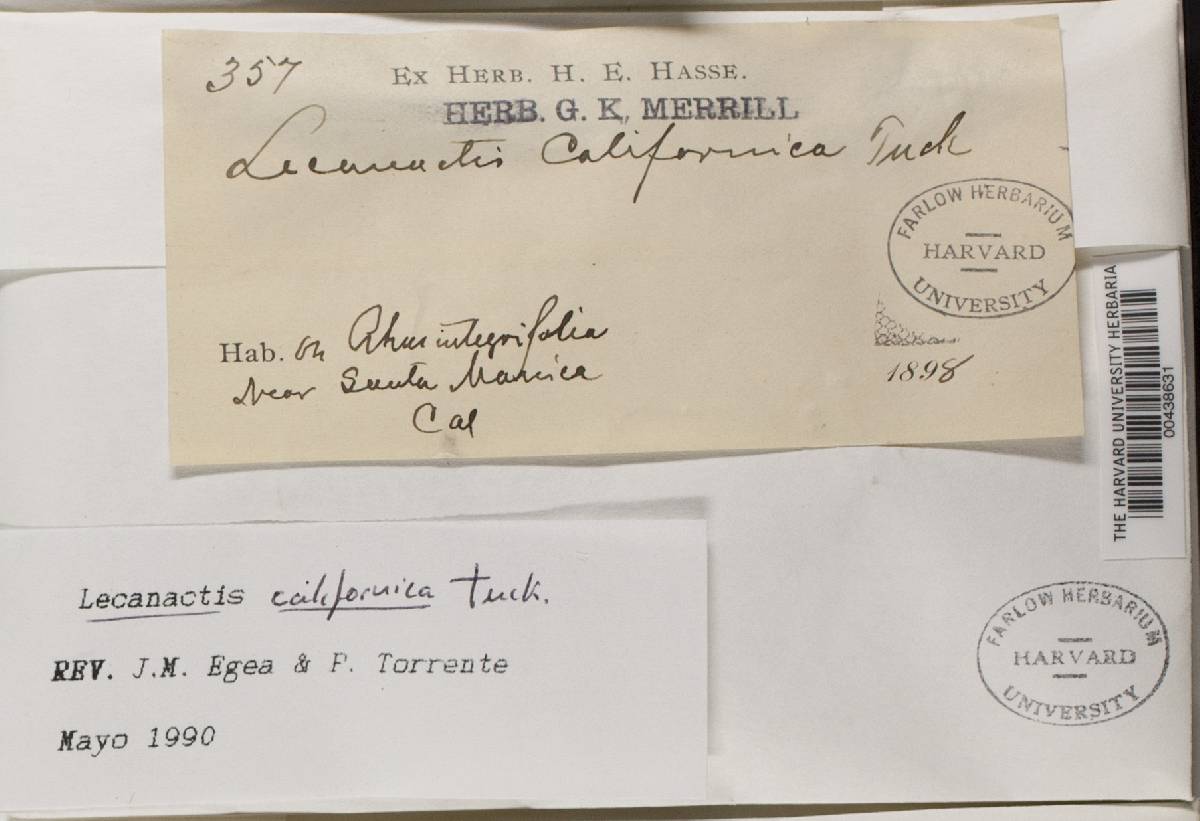 357
Ex Herb. H. E. Hasse.
HERB. G. K. MERRILL
Lecanactis californica Tuck
FARLOW HERBARIUM
HARVARD
UNIVERSITY
Hab. on Rhus integrifolia
near Santa Monica
Cal
1898
THE HARVARD UNIVERSITY HERBARIA
00438631
Lecanactis californica Tuck.
REV. J.M. Egea & P. Torrente
Mayo 1990
FARLOW HERBARIUM
HARVARD
UNIVERSITY